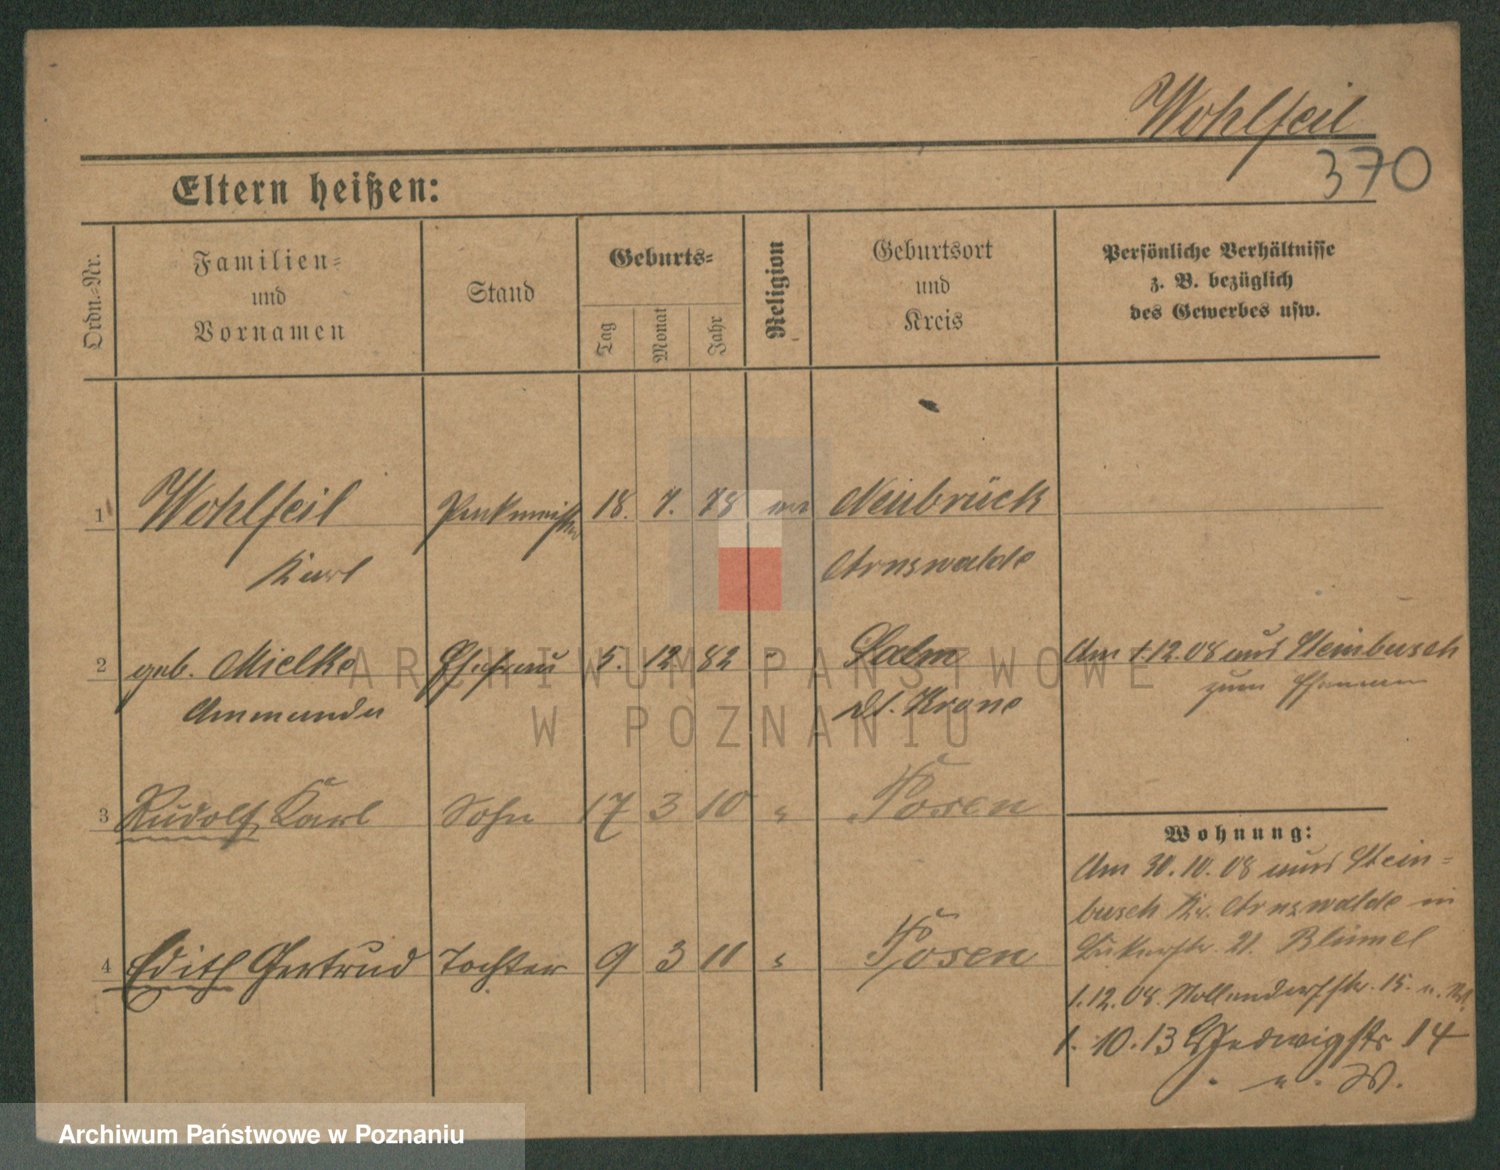 Wohlfeil
370
Eltern heißen:
Ordn.-Nr.
Familien-
und
Vornamen
Stand
Geburts-
Tag
Monat
Jahr
Religion
Geburtsort
und
Kreis
Persönliche Verhältnisse
z. B. bezüglich
des Gewerbes usw.
1 Wohlfeil 18. 7. 78 ev Neubrück
Karl Arnswalde
2 geb. Mielke Ehefrau 5. 12. 82 " Salm Am 1.12.08 aus Steinbusch
Ammanda Dt. Krone zum
3 Rudolf Karl Sohn 17 3 10 " Posen
Wohnung:
Am 30.10.08 aus Stein-
busch Kr. Arnswalde in
21. Blümel
4 Edith Gertrud Tochter 9 3 11 " Posen
1.12.08. Nollendorfstr. 15. u. W.
1. 10. 13 Hedwigstr 14
u. W.
ARCHIWUM PAŃSTWOWE
W POZNANIU
Archiwum Państwowe w Poznaniu